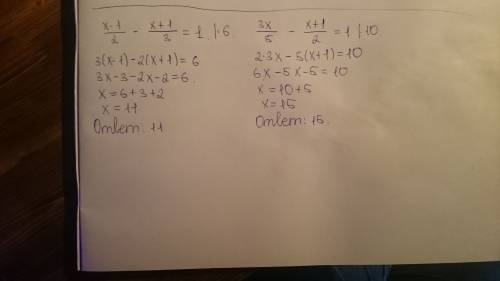 x-1/2 - x+1/3 = 1 |·6
3(x-1)-2(x+1)=6
3x-3-2x-2=6
x=6+3+2
x=11
Ответ: 11
3x/5 - x+1/2 = 1 |·10
2·3x-5(x+1)=10
6x-5x-5=10
x=10+5
x=15
Ответ: 15.